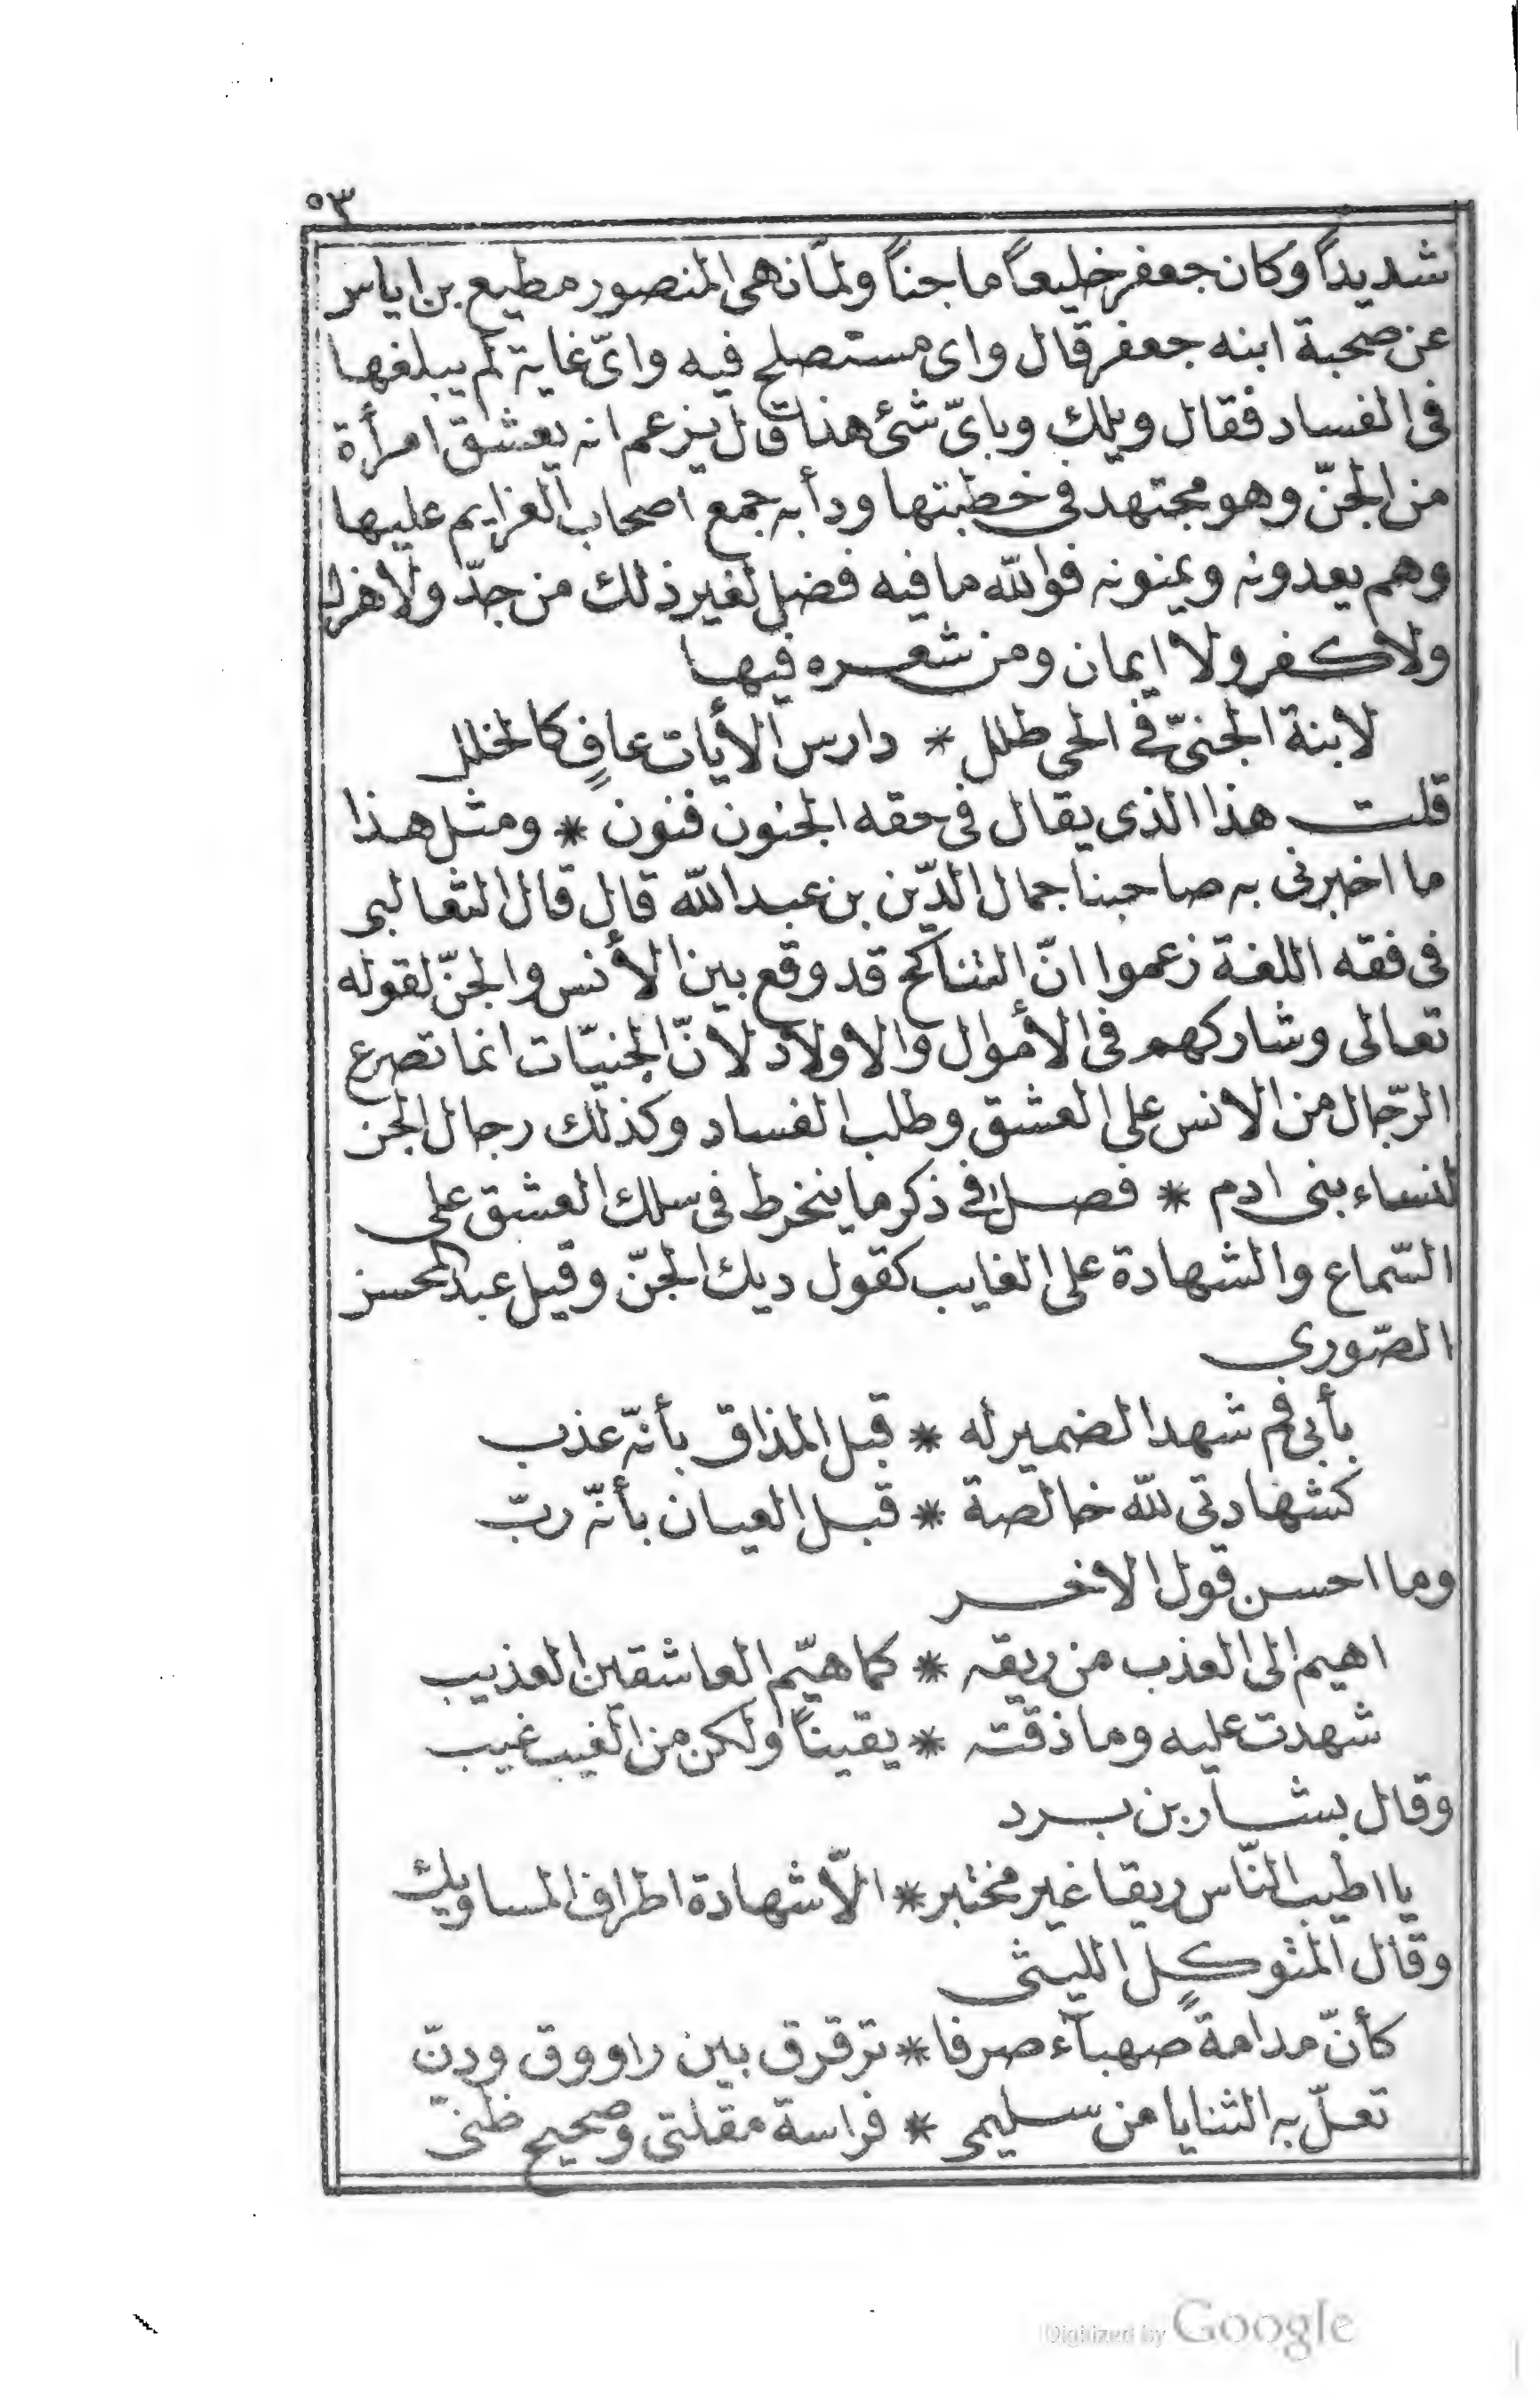 ٥٣
شديداً وكان جعفر خليعاً ماجناً ولمّا نهى المنصور مطيع بن اياس
عن صحبة ابنه جعفر قال واى مستصلح فيه واىّ غاية لم يبلغها
فى الفساد فقال ويلك وباىّ شئ هذا قال يزعم انه يعشق امرأة
من الجنّ وهو مجتهد فى خطبتها ودأبه جمع اصحاب العزايم عليها
وهم يعدونه ويمنونه فوالله ما فيه فضل لغير ذلك من جدّ ولا هزل
ولا كفر ولا ايمان ومن شعره فيها
لابنة الجنىّ فى الحى طلل * دارس الأيات عافٍ كالخلل
قلت هذا الذى يقال فى حقه الجنون فنون * ومثل هذا
ما اخبرنى به صاحبنا جمال الدّين بن عبد الله قال قال الثعالبى
فى فقه اللغة زعموا انّ التناكح قد وقع بين الأنس والجنّ لقوله
تعالى وشاركهم فى الأموال والاولاد لأنّ الجنيّات انما تصرع
الرّجال من الانس على العشق وطلب الفساد وكذلك رجال الجن
لنساء بنى ادم * فصل فى ذكر ما ينخرط فى سلك العشق على
السّماع والشهادة على الغايب كقول ديك الجنّ وقيل عبد المحسن
الصّورى
بأبى فم شهد الضمير له * قبل المذاق بأنّه عذب
كشهادتى لله خالصة * قبل العيان بأنّه ربّ
وما احسن قول الاخر
اهيم الى العذب من ريقه * كما هيّم العاشقين العذيب
شهدت عليه وما ذقته * يقيناً ولكن من الغيب غيب
وقال بشار بن برد
يا اطيب النّاس ريقا غير مختبر * الّا شهادة اطراف المساويك
وقال المتوكل الليثى
كأنّ مدامةً صهبآء صرفا * ترقرق بين راووق ودنّ
تعلّ به الثنايا من سليمى * فراسة مقلتى وصحيح ظنىّ
Digitized by Google